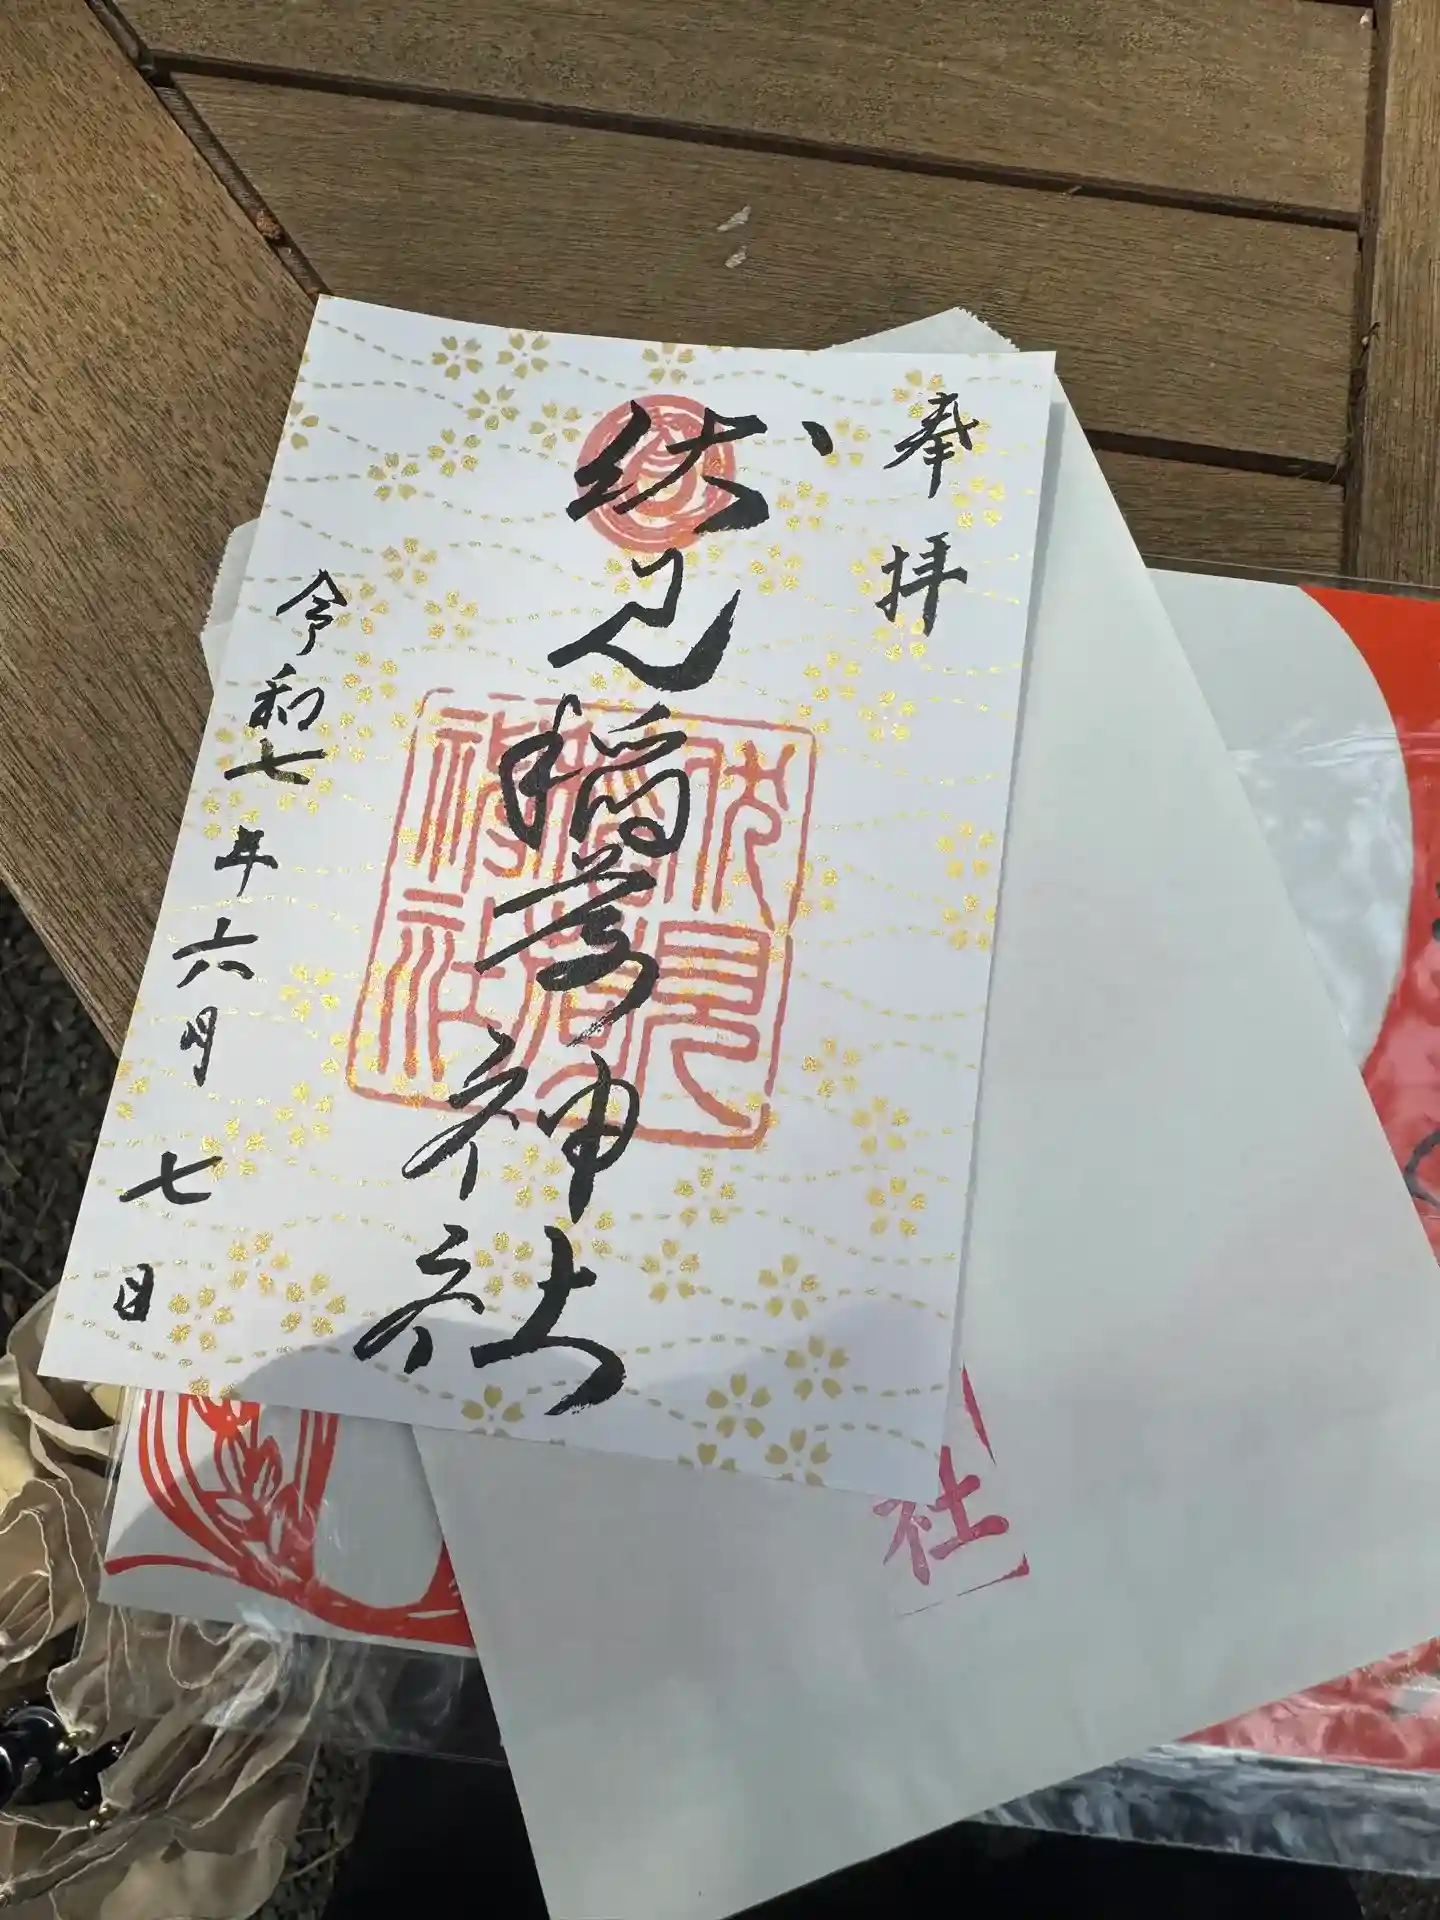 奉拝
伏見稲荷神社
伏見
稲荷
神社
令和七年六月七日
社